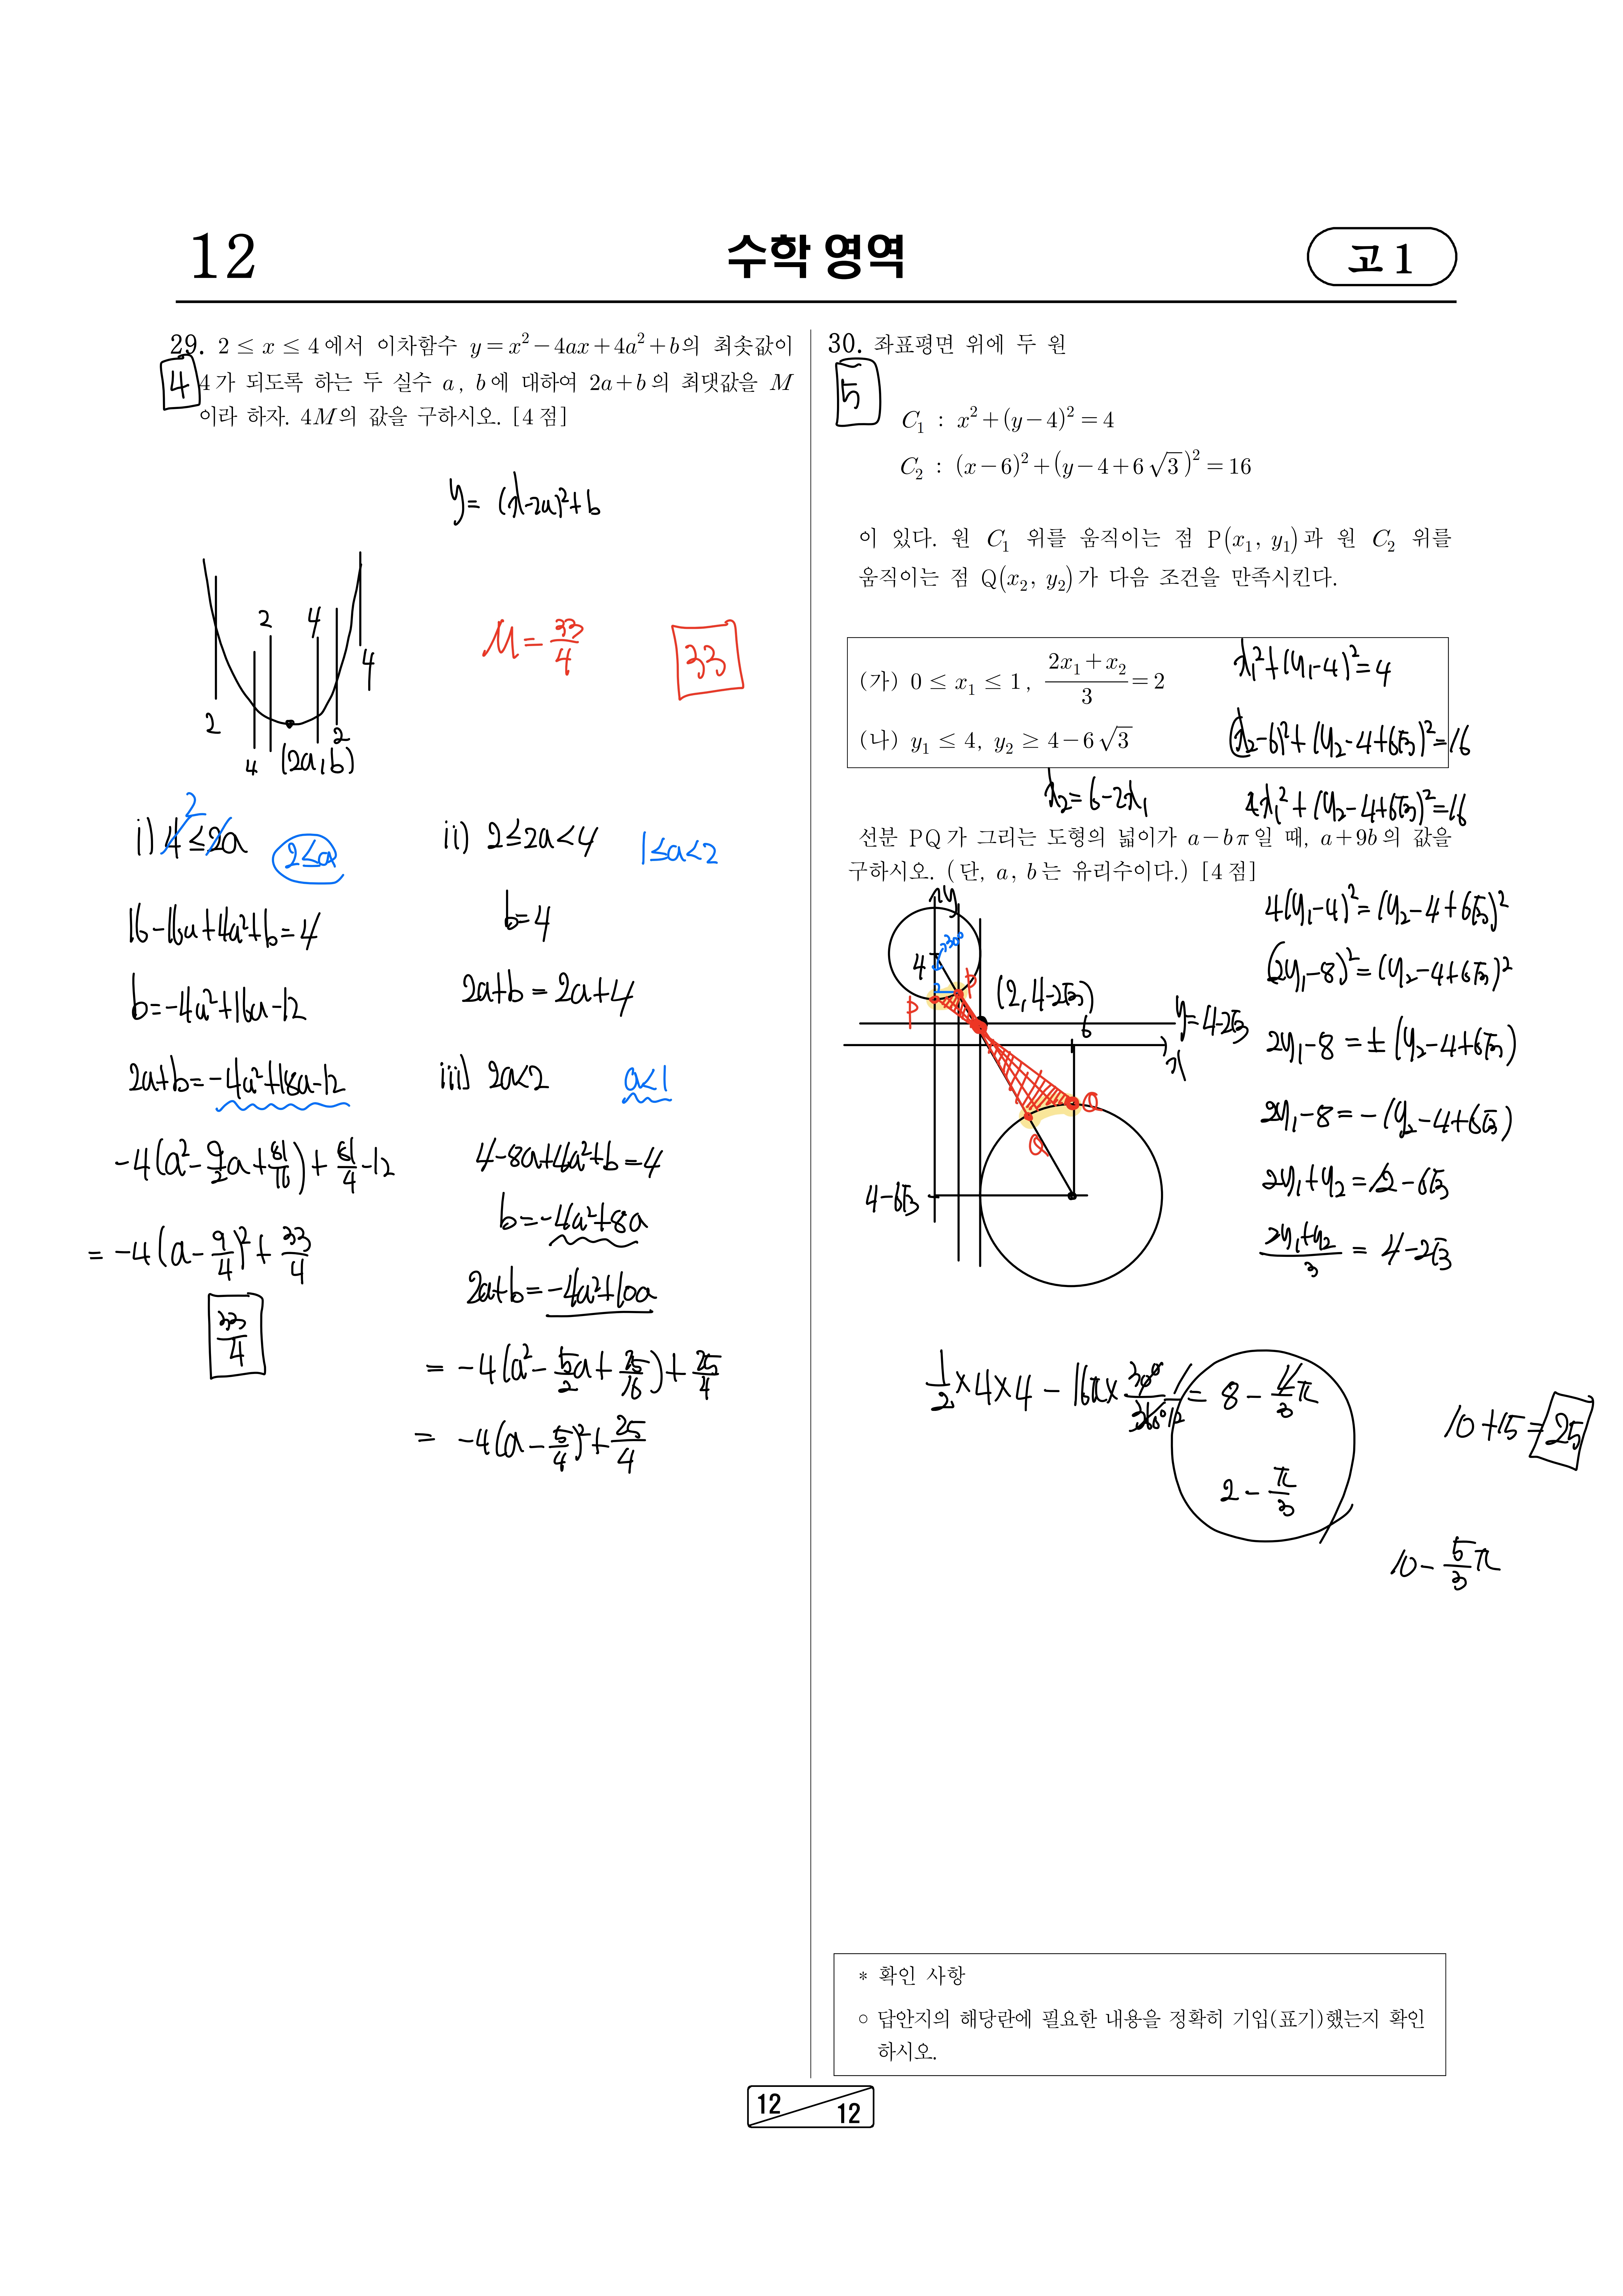 12
수학 영역
고 1
29. 2 ≤ x ≤ 4에서 이차함수 y = x² − 4ax + 4a² + b의 최솟값이
4
4가 되도록 하는 두 실수 a, b에 대하여 2a + b의 최댓값을 M
이라 하자. 4M의 값을 구하시오. [4점]
y = (x-2a)²+b
2
4
2
4
4
2
(2a, b)
M = 33/4
33
i) 4 ≤ 2a
2
2≤a
16-16a+4a²+b=4
b=-4a²+16a-12
2a+b=-4a²+18a-12
-4(a²-9/2a+81/16)+81/4-12
= -4(a-9/4)²+33/4
33/4
ii) 2≤2a<4
1≤a<2
b=4
2a+b = 2a+4
iii) 2a<2
a<1
4-8a+4a²+b=4
b=-4a²+8a
2a+b=-4a²+10a
= -4(a²-5/2a+25/16)+25/4
= -4(a-5/4)²+25/4
30. 좌표평면 위에 두 원
5
C₁ : x² + (y−4)² = 4
C₂ : (x−6)² + (y−4+6√3)² = 16
이 있다. 원 C₁ 위를 움직이는 점 P(x₁, y₁)과 원 C₂ 위를
움직이는 점 Q(x₂, y₂)가 다음 조건을 만족시킨다.
(가) 0 ≤ x₁ ≤ 1, (2x₁+x₂)/3 = 2
x₁²+(y₁-4)²=4
(나) y₁ ≤ 4, y₂ ≥ 4−6√3
(x₂-6)²+(y₂-4+6√3)²=16
x₂=6-2x₁
4x₁²+(y₂-4+6√3)²=16
선분 PQ가 그리는 도형의 넓이가 a−bπ일 때, a+9b의 값을
구하시오. (단, a, b는 유리수이다.) [4점]
y
4
2
30°
P
P
(2, 4-2√3)
6
y=4-2√3
x
Q
Q
4-6√3
4(y₁-4)²=(y₂-4+6√3)²
(2y₁-8)²=(y₂-4+6√3)²
2y₁-8 = ±(y₂-4+6√3)
2y₁-8 = -(y₂-4+6√3)
2y₁+y₂ = 12-6√3
(2y₁+y₂)/3 = 4-2√3
1/2×4×4 - 16π×30°/360° 1/12 = 8 - 4/3π
2 - π/3
10+15=25
10 - 5/3π
* 확인 사항
○ 답안지의 해당란에 필요한 내용을 정확히 기입(표기)했는지 확인
하시오.
12
12